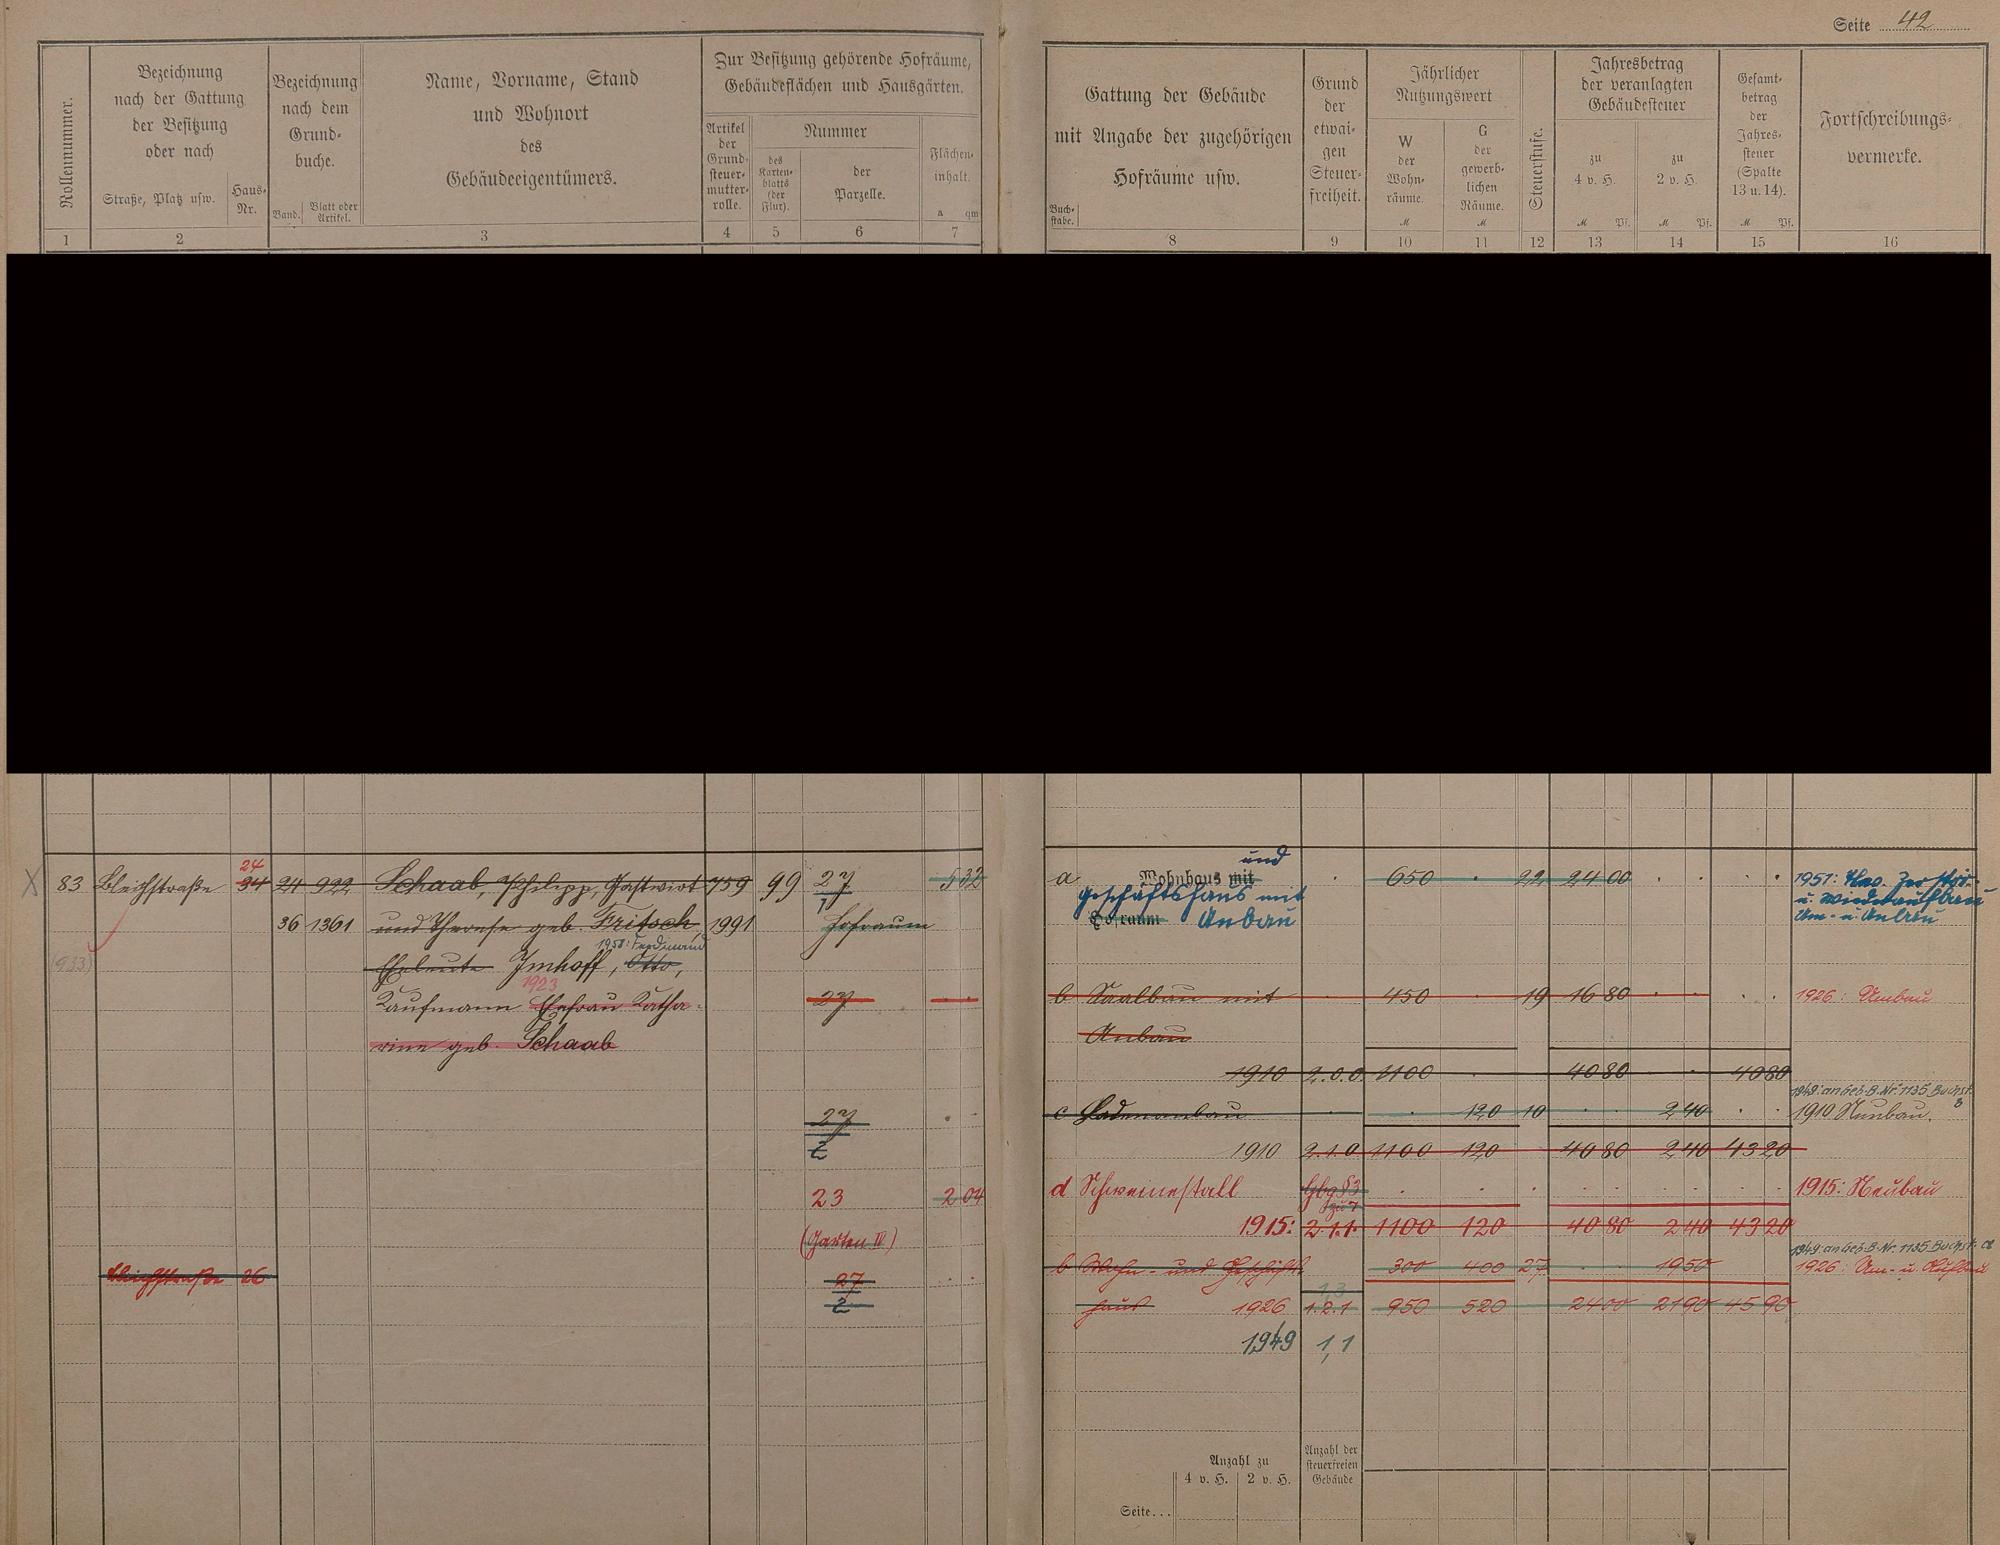 Seite 42
Rollennummer.
Bezeichnung
nach der Gattung
der Besitzung
oder nach
Straße, Platz usw.
Haus-
Nr.
Bezeichnung
nach dem
Grund-
buche.
Band.
Blatt oder
Artikel.
Name, Vorname, Stand
und Wohnort
des
Gebäudeeigentümers.
Zur Besitzung gehörende Hofräume,
Gebäudeflächen und Hausgärten.
Artikel
der
Grund-
steuer-
mutter-
rolle.
Nummer
des
Karten-
blatts
(der
Flur).
der
Parzelle.
Flächen-
inhalt.
a qm
1 2 3 4 5 6 7
Gattung der Gebäude
mit Angabe der zugehörigen
Hofräume usw.
Buch-
stabe.
Grund
der
etwai-
gen
Steuer-
freiheit.
Jährlicher
Nutzungswert
W
der
Wohn-
räume.
M
G
der
gewerb-
lichen
Räume.
M
Steuerstufe.
Jahresbetrag
der veranlagten
Gebäudesteuer
zu
4 v. H.
M Pf.
zu
2 v. H.
M Pf.
Gesamt-
betrag
der
Jahres-
steuer
(Spalte
13 u. 14).
M Pf.
Fortschreibungs-
vermerke.
8 9 10 11 12 13 14 15 16
24
83 Bleichstraße 34 24 922 Schaab, Philipp, Gastwirt 759 99 27 5 32
1
36 1361 und Therese geb. Fritsch, 1991 Hofraum
1958: Ferdinand
(933) Eheleute Imhoff, Otto,
1923
Kaufmann Ehefrau Katha- 27
rine geb. Schaab
27
2
23 2 04
(Garten IV)
Bleichstraße 26 27
2
und
a Wohnhaus mit 650 22 24 00 1951:
Geschäftshaus mit u. Wiederaufbau
Hofraum Anbau Um- u. Anbau
b Saalbau mit 450 19 16 80 1926: Umbau
Anbau
1910 2.0.0 1100 40 80 40 80
1949: an Geb. B. Nr. 1135 Buchst.
c Ladenanbau 120 10 2 40 1910 Neubau.
1910 2.1.0 1100 120 40 80 2 40 43 20
d Schweinestall Gbg § 3 1915: Neubau
zu 7
1915: 2.1.1. 1100 120 40 80 2 40 43 20
1949: an Geb. B. Nr. 1135 Buchst. a
b Wohn- und Geschäfts 300 400 27 19 50 1926: Um- u. Aufbau
1,3
haus 1926 1.2.1 950 520 24 00 21 90 45 90
1949 1,1
Anzahl zu
4 v. H. 2 v. H.
Anzahl der
steuerfreien
Gebäude
Seite...